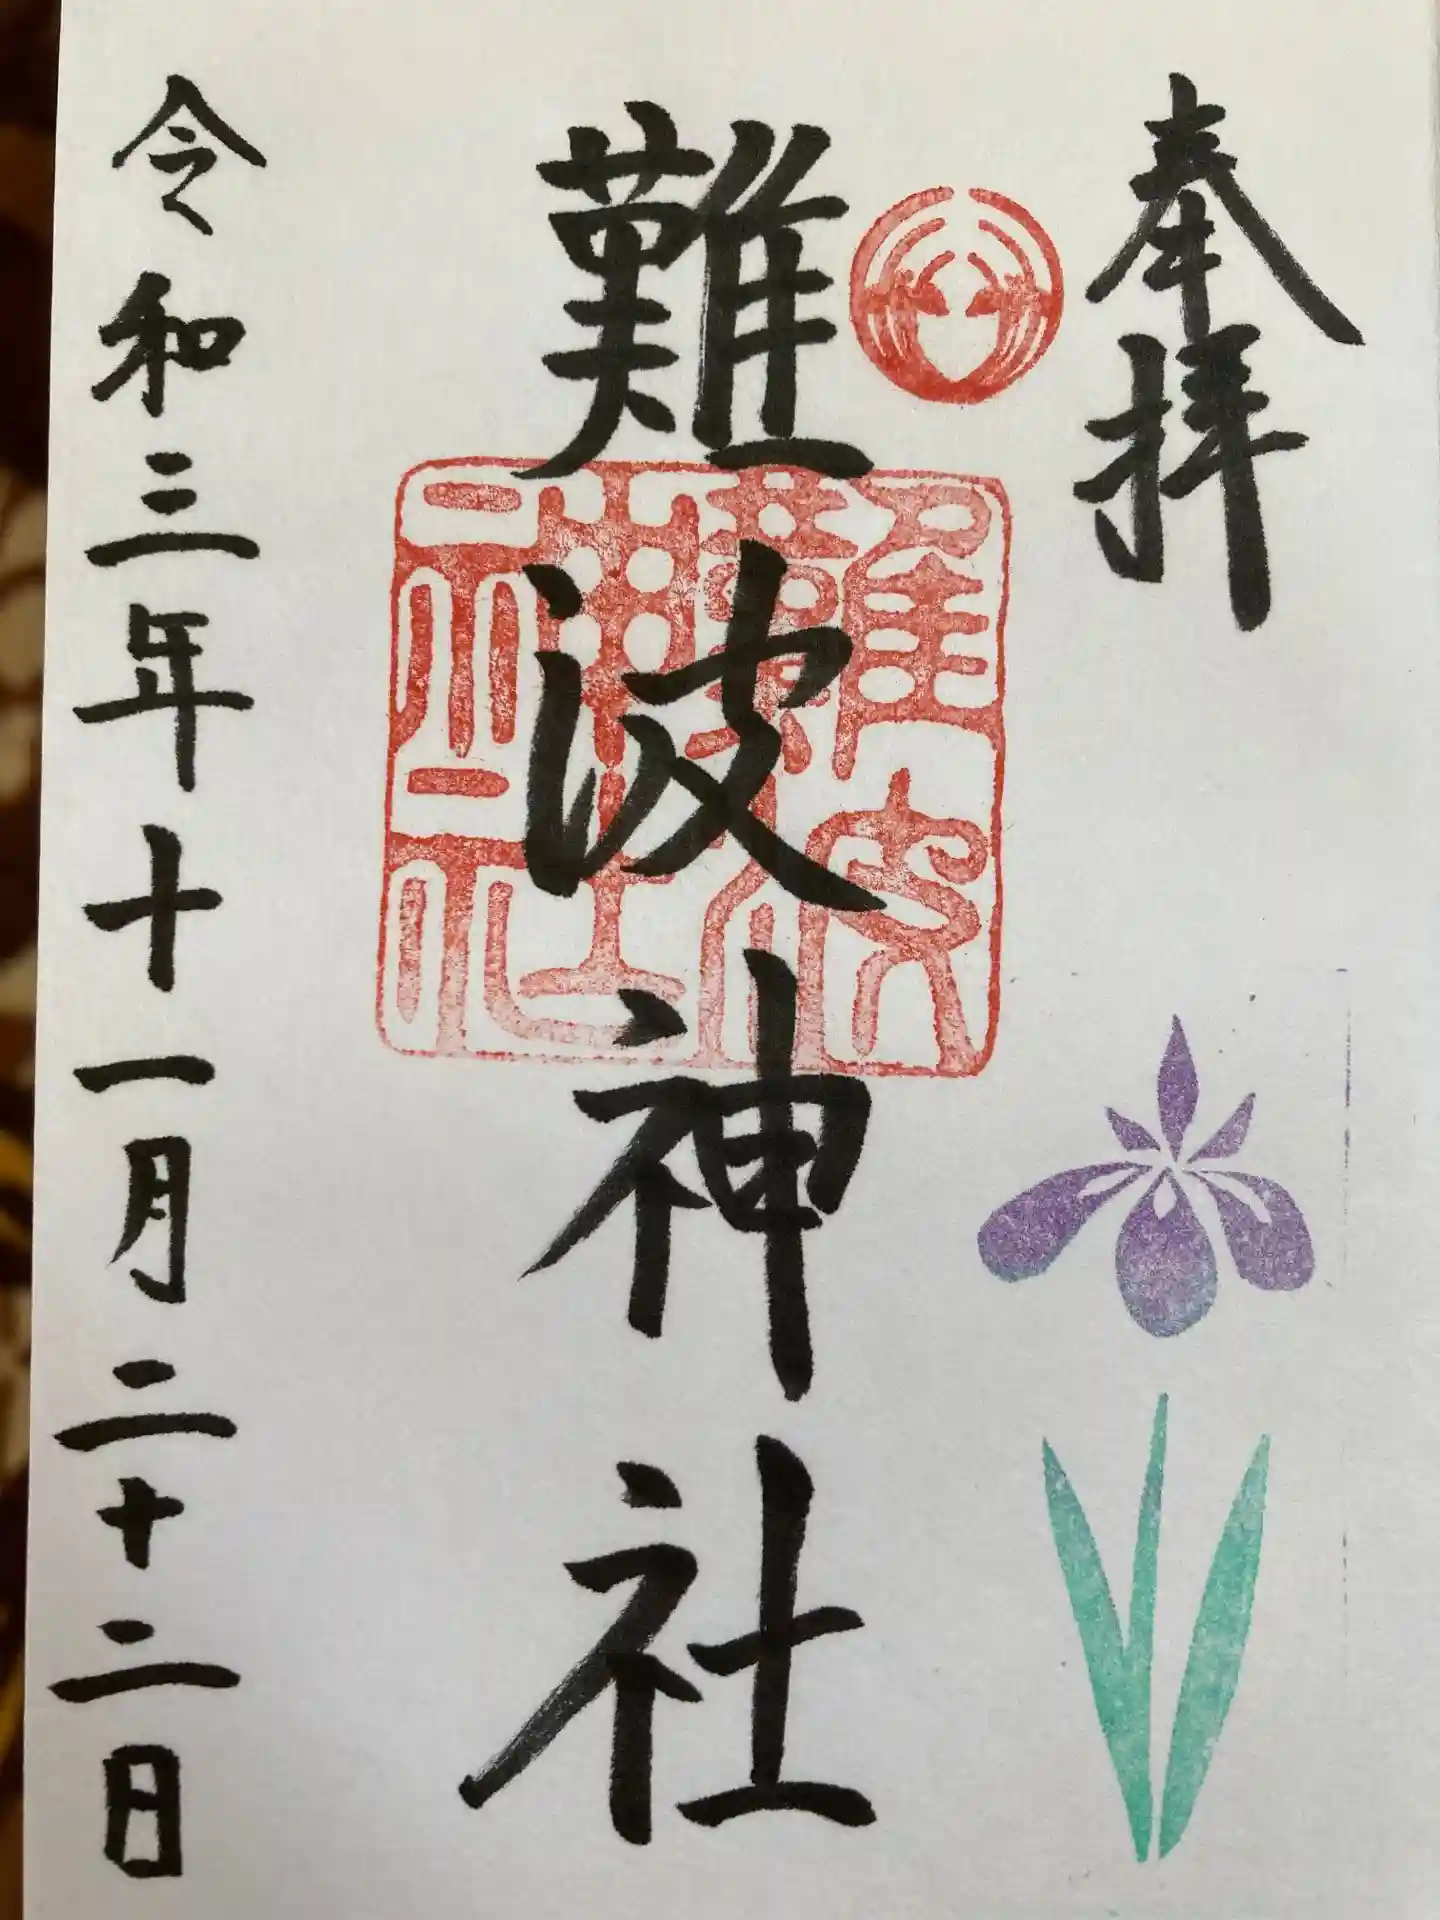 奉拝
難波神社
難波神社
令和三年十一月二十二日